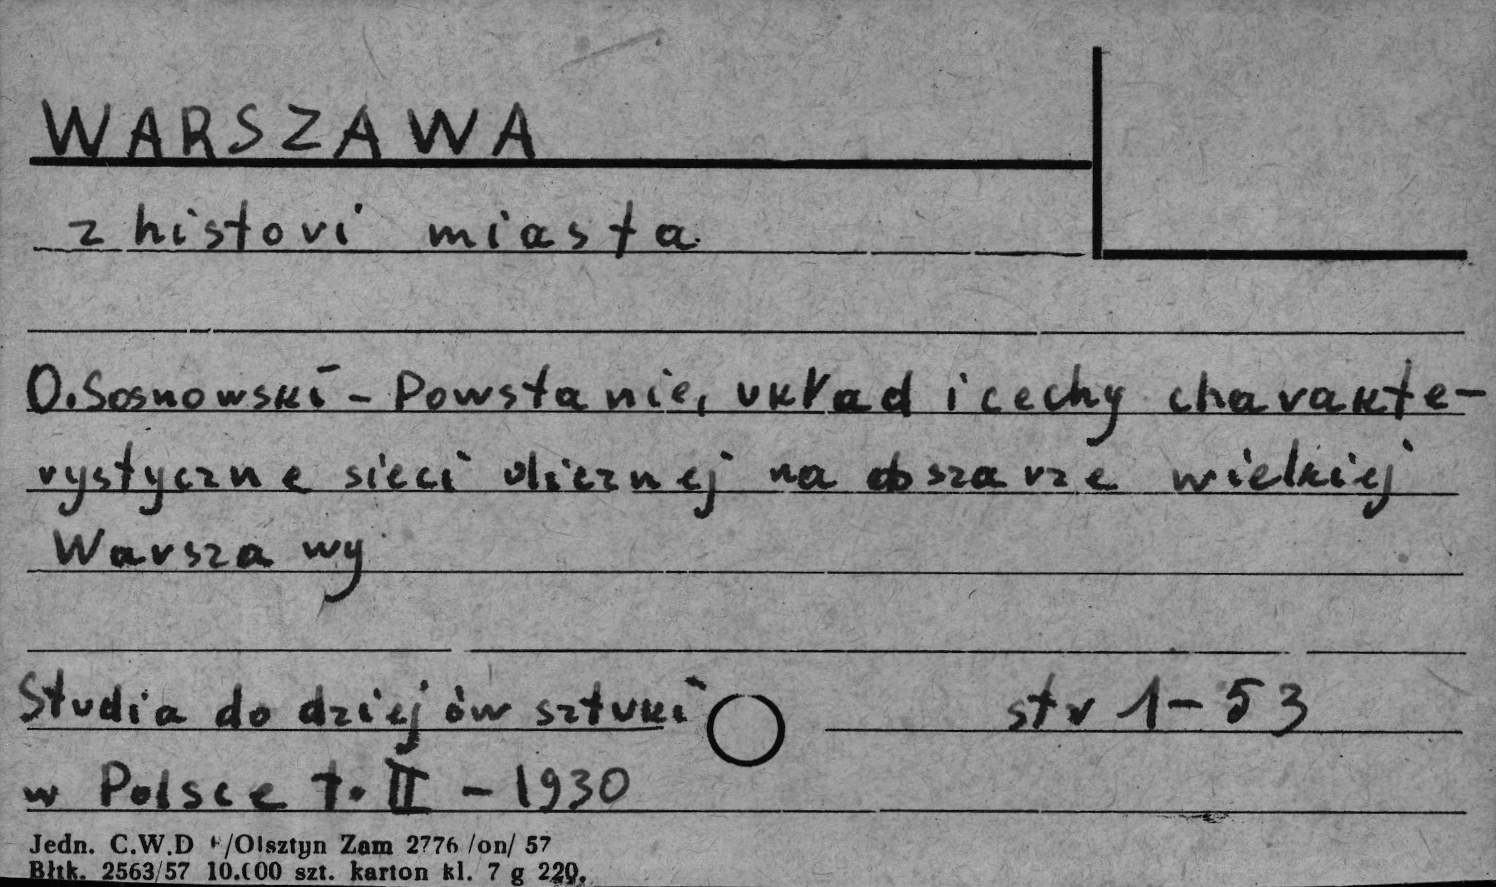 WARSZAWA
z histori miasta
O. Sosnowski - Powstanie, układ i cechy charakte-
rystyczne sieci ulicznej na obszarze wielkiej
Warszawy
Studia do dziejów sztuki str 1-53
w Polsce t. II - 1930
Jedn. C.W.D /Olsztyn Zam 2776 /on/ 57
Błtk. 2563/57 10.000 szt. karton kl. 7 g 220.